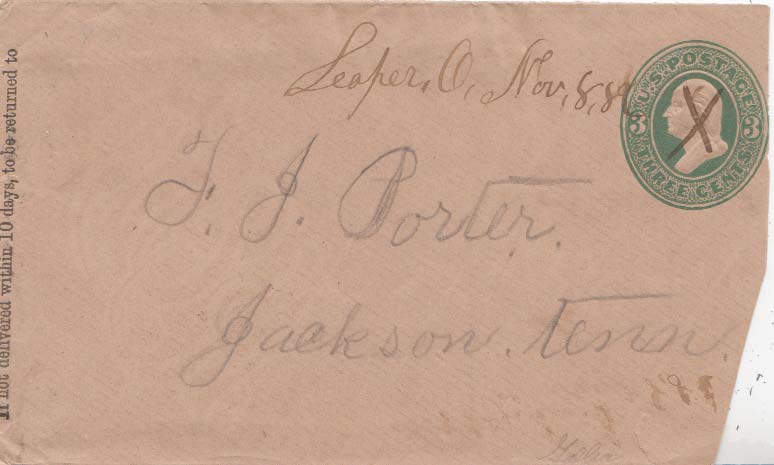 If not delivered within 10 days, to be returned to
Leaper, O, Nov, 8, 86
U.S. POSTAGE
3 3
THREE CENTS
T. J. Porter.
Jackson. Tenn.